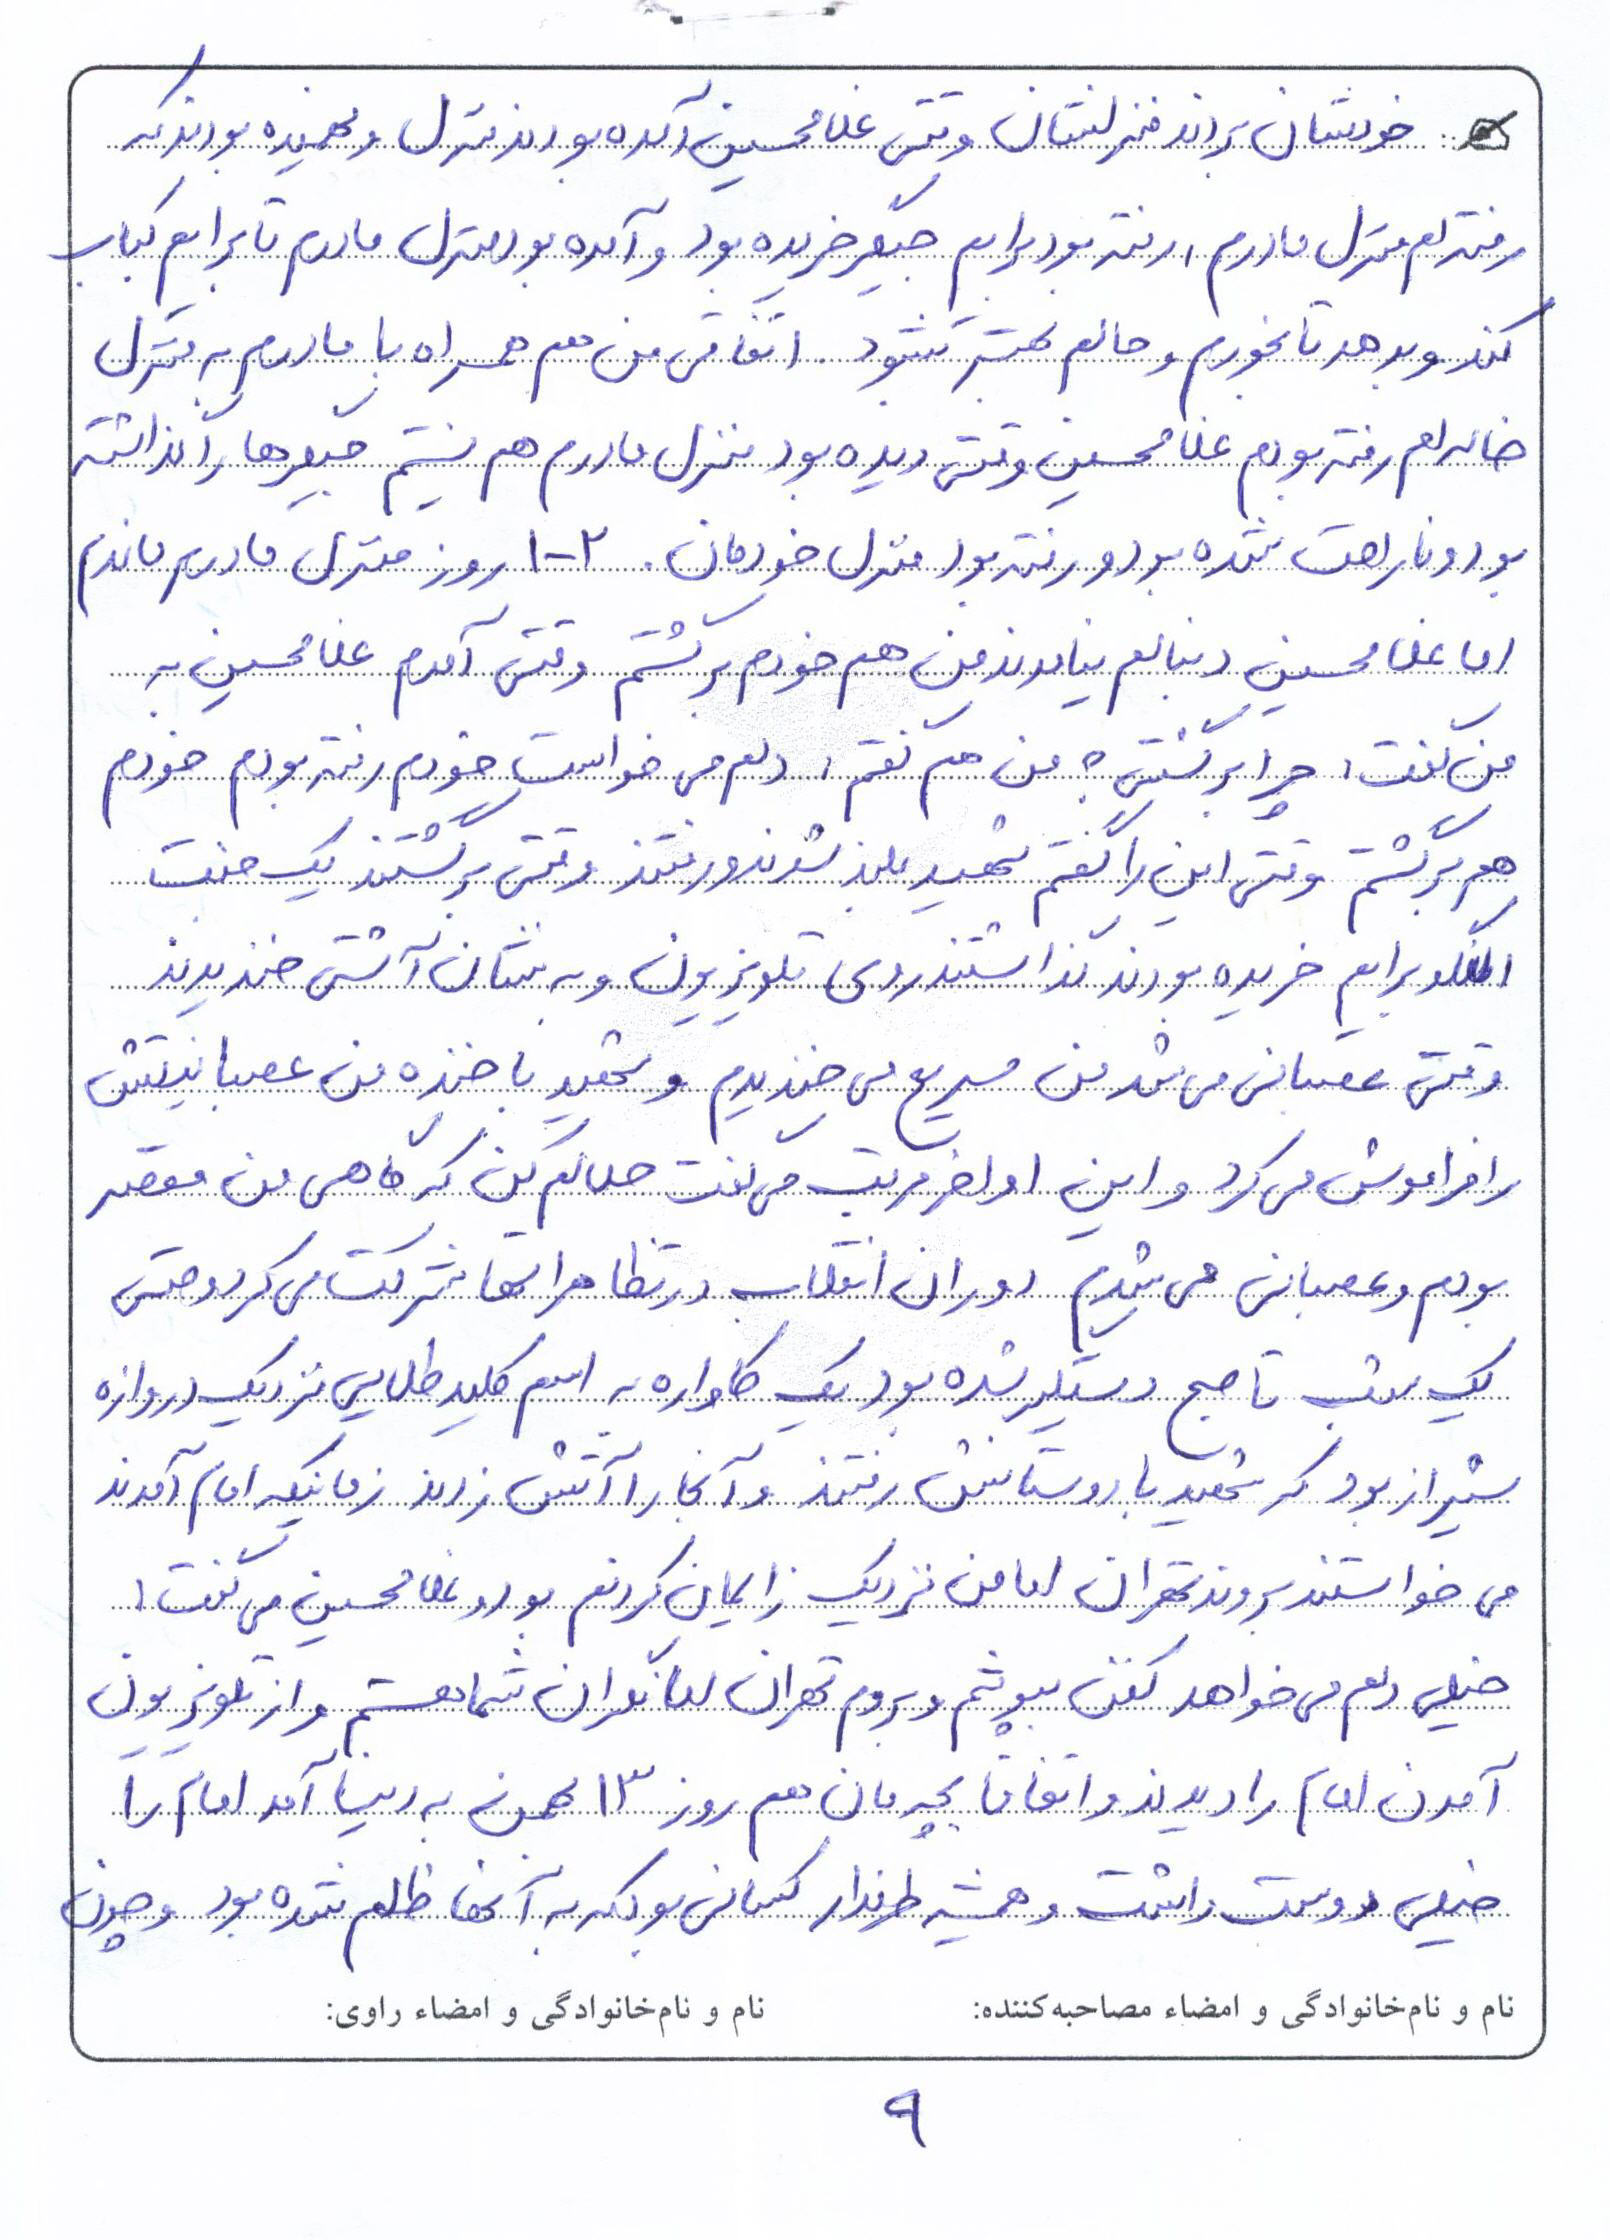 خودشان بردند منزلشان وقتی غلامحسین آمده بودند منزل و فهمیده بودند که
رفته‌ام منزل مادرم، رفته بود برایم جیگر خریده بود و آمده بود منزل مادرم تا برایم کباب
کند و بدهد تا بخورم و حالم بهتر شود. اتفاقی من هم همراه با مادرم به منزل
خاله‌ام رفته بودم غلامحسین وقتی دیده بود منزل مادرم هم نیستم جیگرها را گذاشته
بود و ناراحت شده بود و رفته بود منزل خودمان. ۲-۱ روز منزل مادرم ماندم
اما غلامحسین دنبالم نیامدند من هم خودم برگشتم وقتی آمدم غلامحسین به
من گفت: چرا برگشتی؟ من هم گفتم: دلم می خواست خودم رفته بودم خودم
هم برگشتم وقتی این را گفتم شهید بلند شدند و رفتند وقتی برگشتند یک جفت
النگو برایم خریده بودند گذاشتند روی تلویزیون و به نشان آشتی خندیدند
وقتی عصبانی می شد من سریع می خندیدم و شهید با خنده من عصبانیتش
را فراموش می کرد و این اواخر مرتب می گفت حلالم کن که گاهی من مقصر
بودم و عصبانی می شدم دوران انقلاب در تظاهراتها شرکت می کرد و حتی
یک شب تا صبح دستگیر شده بود یک کاواره به اسم کلید طلایی نزدیک دروازه
شیراز بود که شهید با دوستانش رفتند و آنجا را آتش زدند زمانیکه امام آمدند
می خواستند بروند تهران اما من نزدیک زایمان کردنم بود و غلامحسین می گفت:
خیلی دلم می خواهد کفن بپوشم و بروم تهران اما نگران شما هستم و از تلویزیون
آمدن امام را دیدند و اتفاقا بچه مان هم روز ۱۳ بهمن به دنیا آمد امام را
خیلی دوست داشت و همیشه طرفدار کسانی بود که به آنها ظلم شده بود و چون
نام و نام‌خانوادگی و امضاء مصاحبه‌کننده: نام و نام‌خانوادگی و امضاء راوی:
۹